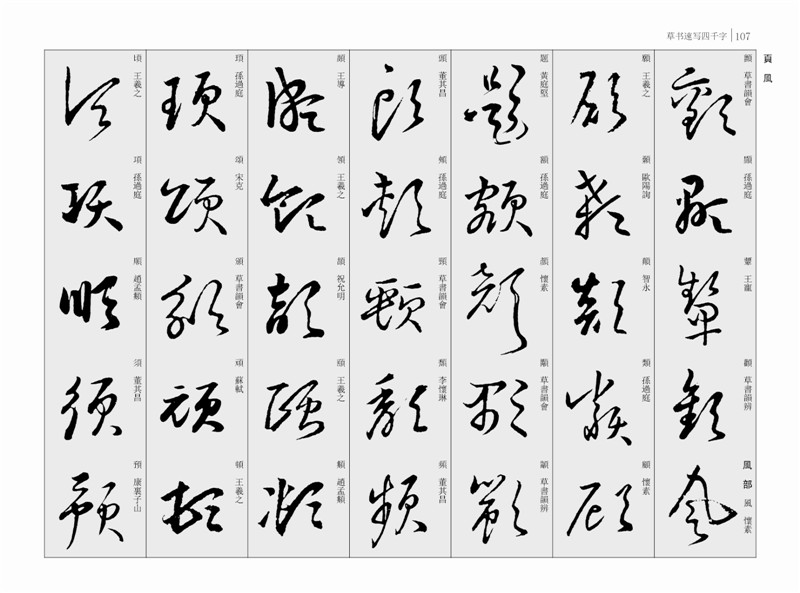 草书速写四千字 107
頁 風
頃 王羲之
項 孫過庭
順 趙孟頫
須 董其昌
預 康裏子山
頊 孫過庭
頌 宋克
頒 草書韻會
頑 蘇軾
頓 王羲之
頗 王導
領 王羲之
頡 祝允明
頤 王羲之
頫 趙孟頫
頭 董其昌
頰 孫過庭
頸 草書韻會
頹 李懷琳
頻 董其昌
題 黃庭堅
額 孫過庭
顏 懷素
顒 草書韻會
草書韻辨
願 王羲之
顙 歐陽詢
顛 智永
類 孫過庭
顧 懷素
顫 草書韻會
顯 孫過庭
顰 王寵
顴 草書韻辨
風部 風 懷素